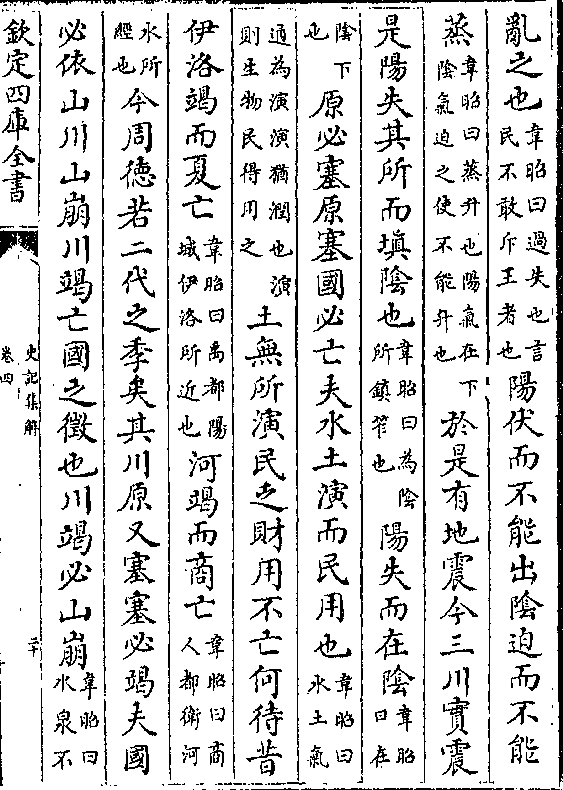 亂之也韋昭曰過失也言民不敢斥王者也陽伏而不能出陰迫而不能
蒸韋昭曰蒸升也陽氣在下陰氣迫之使不能升也於是有地震今三川實震
是陽失其所而填陰也韋昭曰為陰所鎮笮也陽失而在陰韋昭曰在
陰下也原必塞原塞國必亡夫水土演而民用也韋昭曰水土氣
通為演演猶潤也演則生物民得用之土無所演民乏財用不亡何待昔
伊洛竭而夏亡韋昭曰禹都陽城伊洛所近也河竭而商亡韋昭曰商人都衛河
水所經也今周德若二代之季矣其川原又塞塞必竭夫國
必依山川山崩川竭亡國之徵也川竭必山崩韋昭曰水泉不
欽定四庫全書
史記集解
卷四
二十